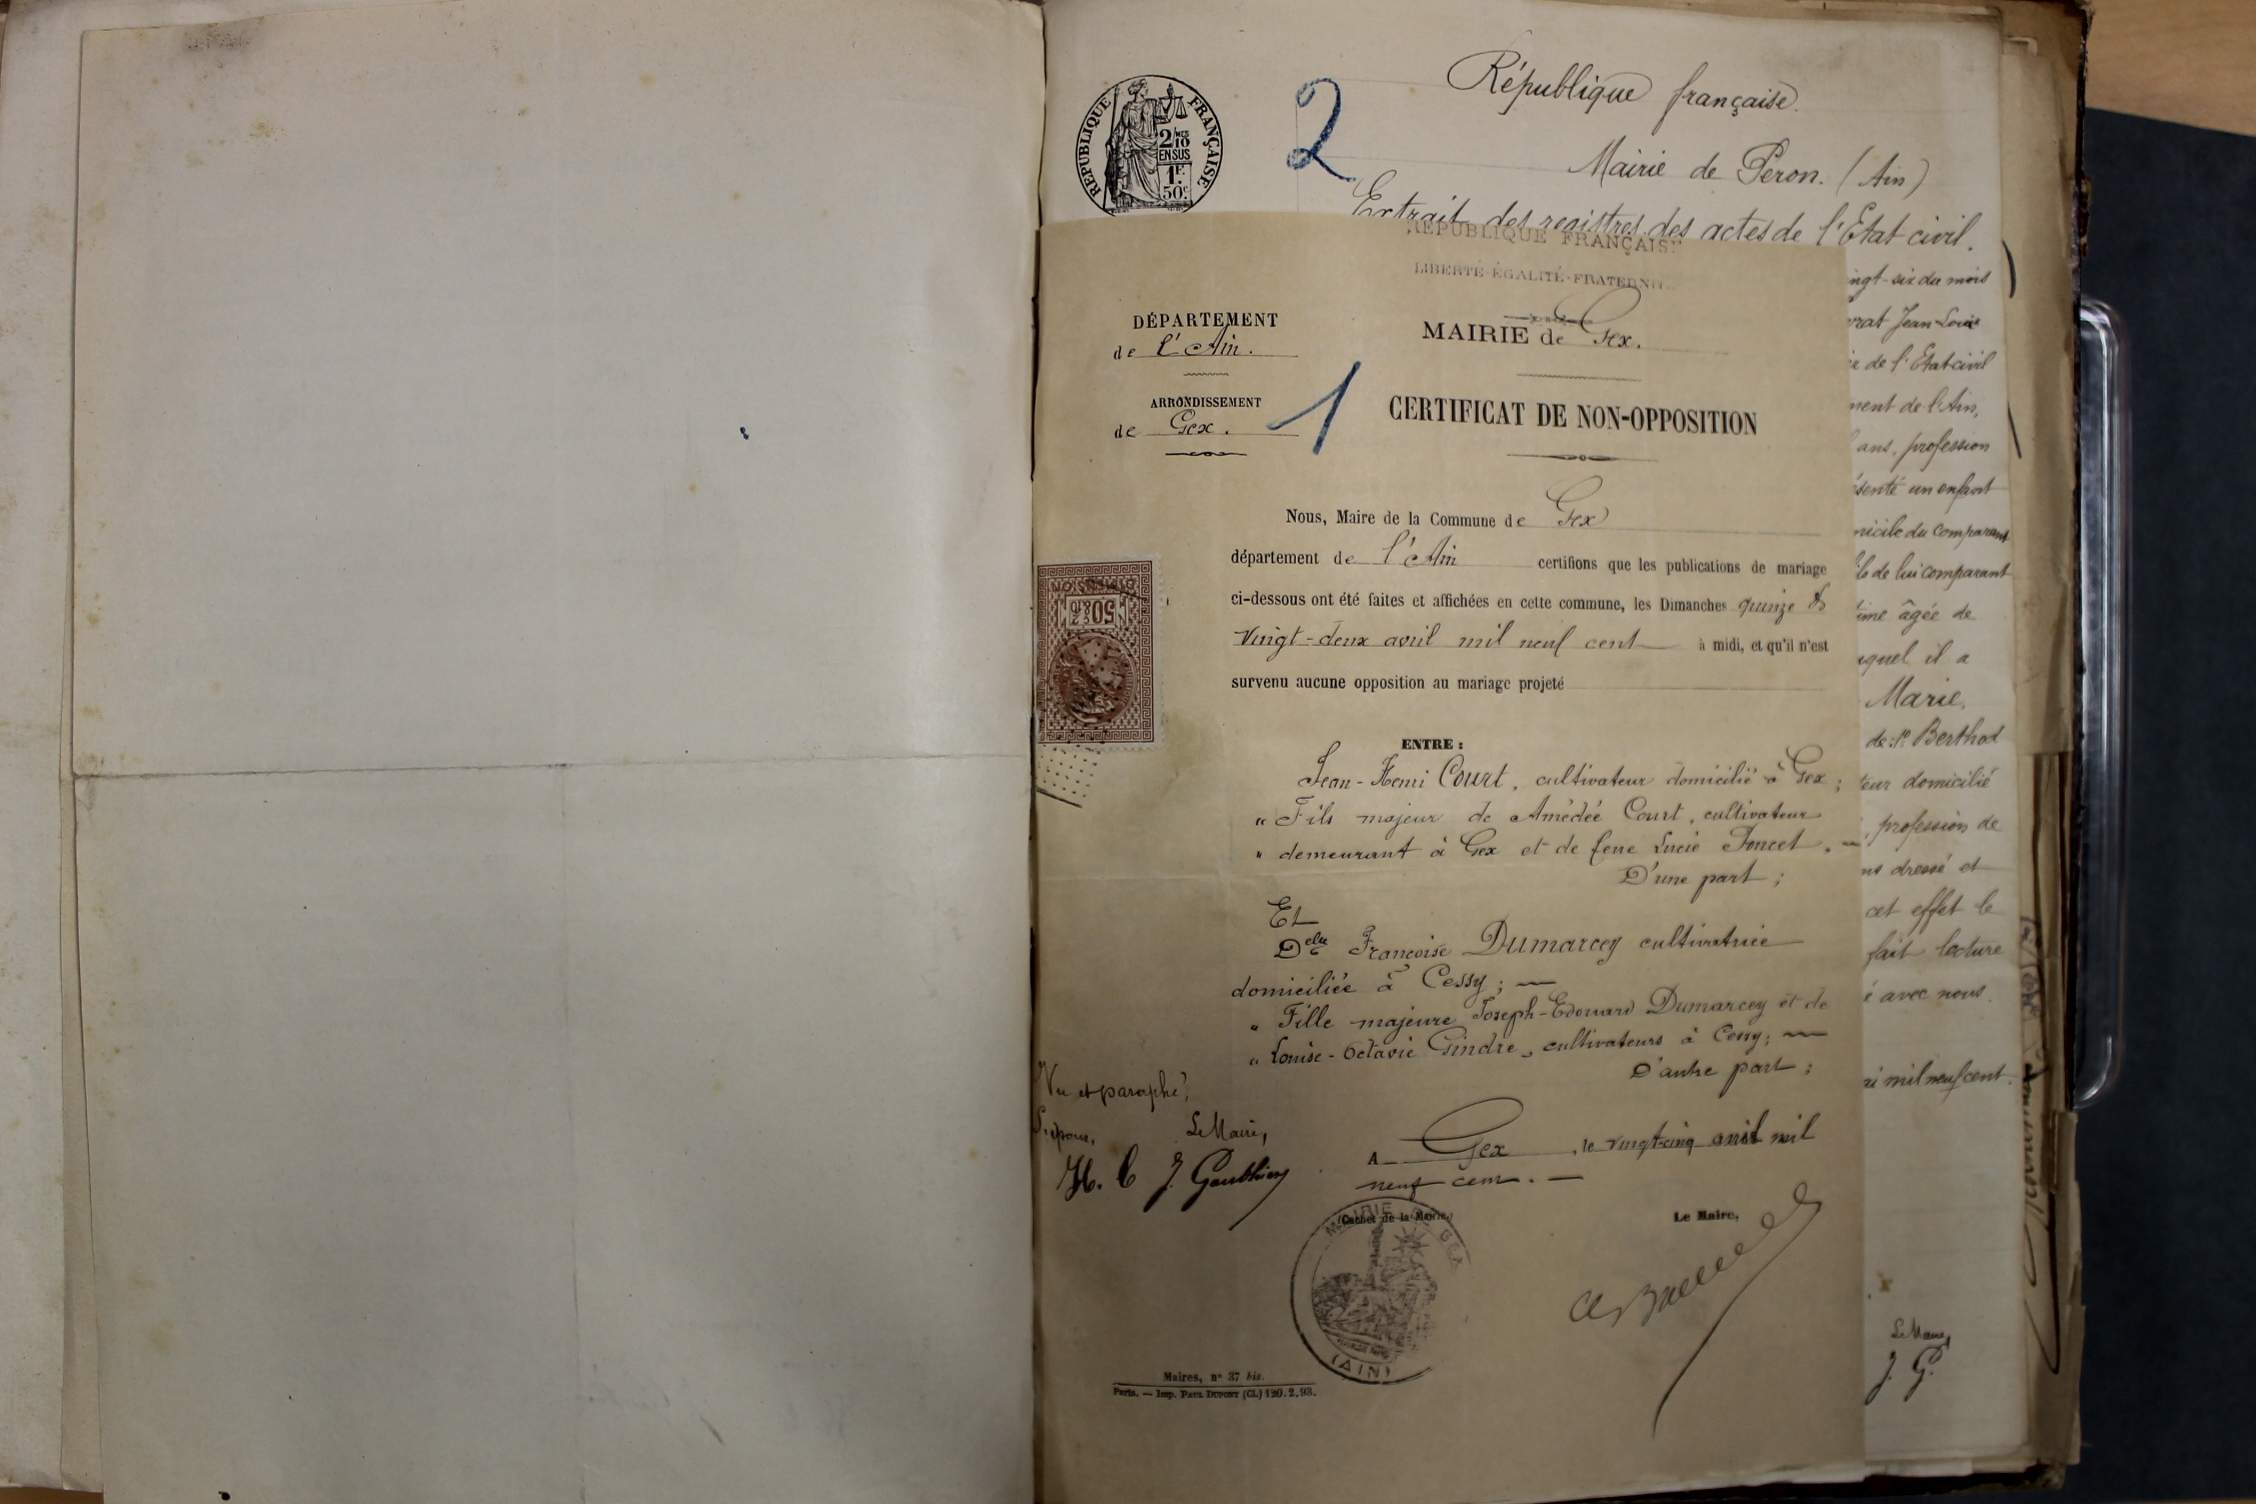 République française
2
Mairie de Peron. (Ain)
Extrait des registres des actes de l'Etat civil.
RÉPUBLIQUE FRANÇAISE
2/10
EN SUS
1F.
50c.
RÉPUBLIQUE FRANÇAIS
LIBERTÉ-ÉGALITÉ-FRATERNI
DÉPARTEMENT
de l'Ain.
ARRONDISSEMENT
de Gex.
1
MAIRIE de Gex.
CERTIFICAT DE NON-OPPOSITION
Nous, Maire de la Commune de Gex
département de l'Ain certifions que les publications de mariage
ci-dessous ont été faites et affichées en cette commune, les Dimanches quinze &
vingt-deux avril mil neuf cent à midi, et qu'il n'est
survenu aucune opposition au mariage projeté
ENTRE :
Jean-Henri Court, cultivateur domicilié à Gex ;
" Fils majeur de Amédée Court, cultivateur
" demeurant à Gex et de feue Lucie Poncet. —
D'une part ;
Et
Delle Françoise Dumarcey cultivatrice
domiciliée à Cessy ; —
" Fille majeure Joseph-Edouard Dumarcey et de
" Louise-Octavie Gindre, cultivateurs à Cessy ; —
D'autre part ;
A Gex, le vingt-cinq avril mil
neuf cent. —
(Cachet de la Mairie.)
Le Maire,
MAIRIE DE GEX
(AIN)
Vu et paraphé,
L'époux,
Le Maire,
H. C J. Gauthier
Maires, n° 37 bis.
Paris. — Imp. PAUL DUPONT (Cl.) 120.2.93.
DIMENSION
50c
2/10
ingt-six du mois
rat Jean-Louis
de l'Etat-civil
ment de l'Ain,
ans, profession
ésenté un enfant
micile du comparant
de lui comparant
ime âgée de
quel il a
Marie,
de: Berthod
teur domicilié
, profession de
ns dressé et
cet effet le
fait lecture
é avec nous.
ai mil neuf cent.
Le Maire,
J. G.